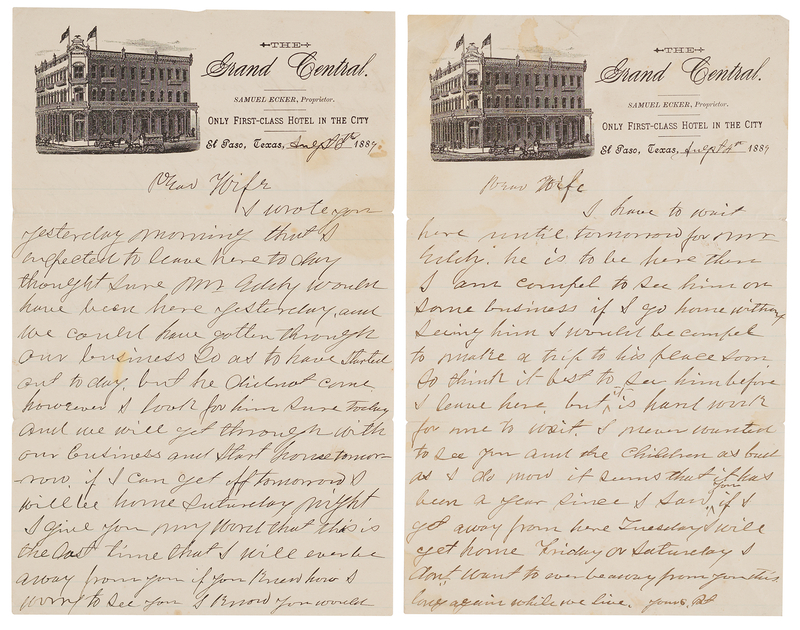 THE
Grand Central.
SAMUEL ECKER, Proprietor.
ONLY FIRST-CLASS HOTEL IN THE CITY
El Paso, Texas, 1889
Dear Wife
I wrote you
yesterday morning that I
expected to leave here to day
thought sure Mr Eddy would
have been here yesterday, and
we could have gotten through
our business so as to have started
out to day, but he did not come
however I look for him sure today
and we will get through with
our business and start home tomor-
row. if I can get off tomorrow I
will be home Saturday night
I give you my word that this is
the last time that I will ever be
away from you if you knew how I
want to see you I know you would
THE
Grand Central.
SAMUEL ECKER, Proprietor.
ONLY FIRST-CLASS HOTEL IN THE CITY
El Paso, Texas, 1889
Dear Wife
I have to wait
here until tomorrow for Mr
Eddy. he is to be here then
I am compel to see him on
some business if I go home without
seeing him I would be compel
to make a trip to his place soon
so think it best to see him before
I leave here, but it is hard work
for me to wait. I never wanted
to see you and the children as bad
as I do now it seems that it has
been a year since I saw you if I
get away from here Tuesday I will
get home Friday or Saturday I
dont want to ever be away from you this
long again while we live. yours.